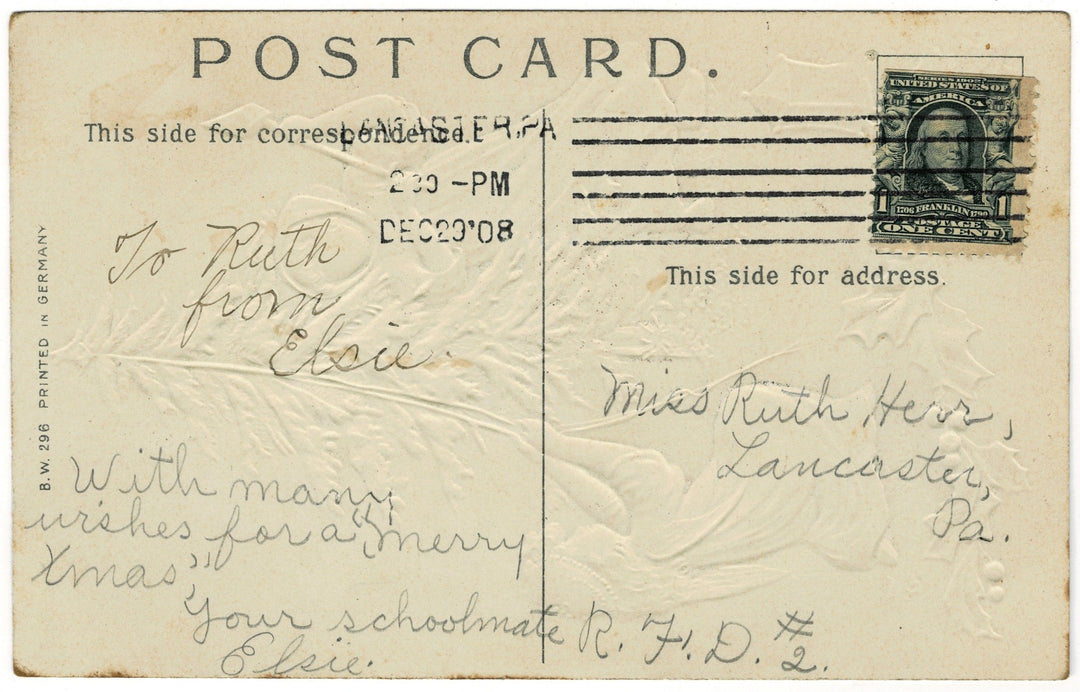 POST CARD.
This side for correspondence.
LANCASTER, PA
2 30 -PM
DEC 29 '08
SERIES 1902
UNITED STATES OF
AMERICA
1 1706 FRANKLIN 1790 1
POSTAGE
ONE CENT
This side for address.
To Ruth
from
Elsie.
With many
wishes for a "merry
Xmas",
Your schoolmate
Elsie.
Miss Ruth Herr,
Lancaster,
Pa.
R. F. D. #2.
B.W. 296 PRINTED IN GERMANY